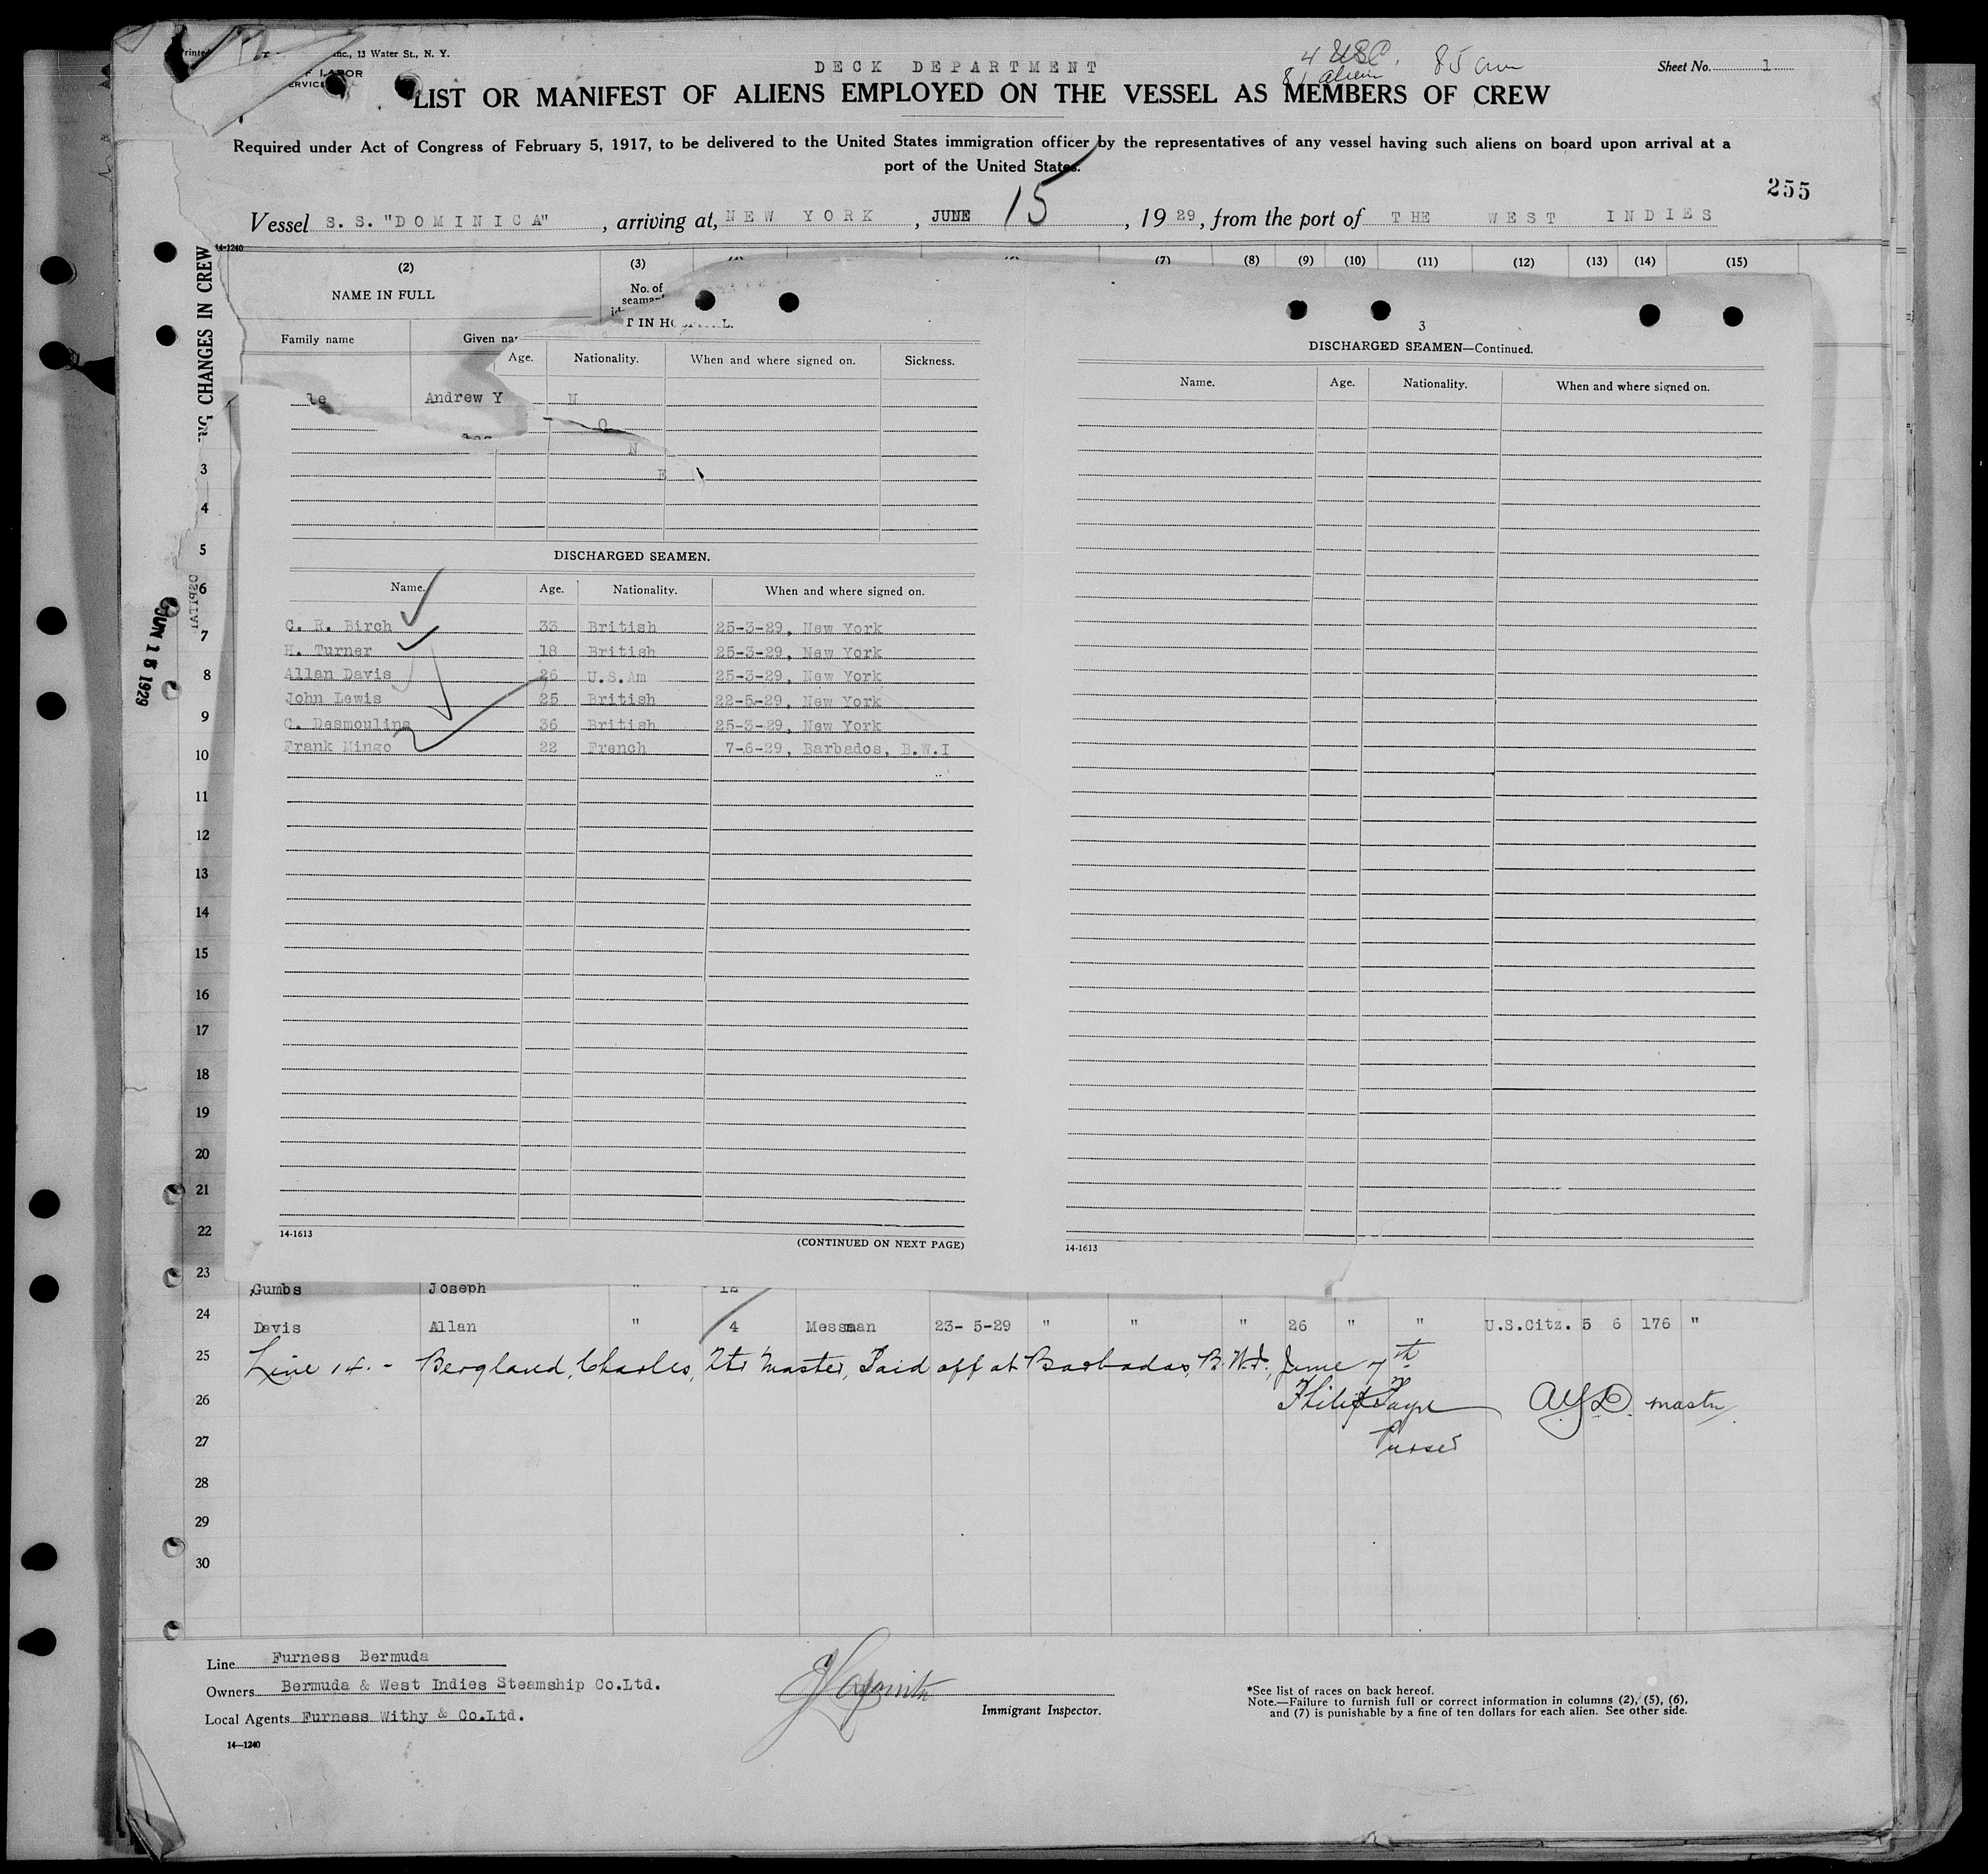 Printed
Inc., 13 Water St., N. Y.
DECK DEPARTMENT
4 USC. 85 crew
81 alien
Sheet No. 1
LIST OR MANIFEST OF ALIENS EMPLOYED ON THE VESSEL AS MEMBERS OF CREW
Required under Act of Congress of February 5, 1917, to be delivered to the United States immigration officer by the representatives of any vessel having such aliens on board upon arrival at a
port of the United States.
255
Vessel S. S. "DOMINICA", arriving at, NEW YORK, JUNE 15, 1929, from the port of THE WEST INDIES
14-1240
CHANGES IN CREW
(2) (3) (7) (8) (9) (10) (11) (12) (13) (14) (15)
NAME IN FULL
No. of
Family name Given
Age. Nationality. When and where signed on. Sickness.
Andrew Y
N
O
N
E
DISCHARGED SEAMEN.
Name. Age. Nationality. When and where signed on.
C. R. Birch 33 British 25-3-29, New York
H. Turner 18 British 25-3-29, New York
Allan Davis 26 U.S.Am 25-3-29, New York
John Lewis 25 British 22-5-29, New York
C. Desmoulins 36 British 25-3-29, New York
Frank Mingo 22 French 7-6-29, Barbados, B.W.I
14-1613
(CONTINUED ON NEXT PAGE)
3
DISCHARGED SEAMEN—Continued.
Name. Age. Nationality. When and where signed on.
14-1613
JUN 15 1929
3
4
5
6
7
8
9
10
11
12
13
14
15
16
17
18
19
20
21
22
23 Gumbs Joseph " 12
24 Davis Allan " 4 Messman 23- 5-29 " " " 26 " " U.S.Citz. 5 6 176 "
25 Line 14. - Bergland, Charles, Qtr Master, Paid off at Barbados, B.W.I., June 7th
26 master
27 Purser
28
29
30
Line Furness Bermuda
Owners Bermuda & West Indies Steamship Co.Ltd.
Local Agents Furness Withy & Co.Ltd.
14—1240
Immigrant Inspector.
*See list of races on back hereof.
Note.—Failure to furnish full or correct information in columns (2), (5), (6),
and (7) is punishable by a fine of ten dollars for each alien. See other side.